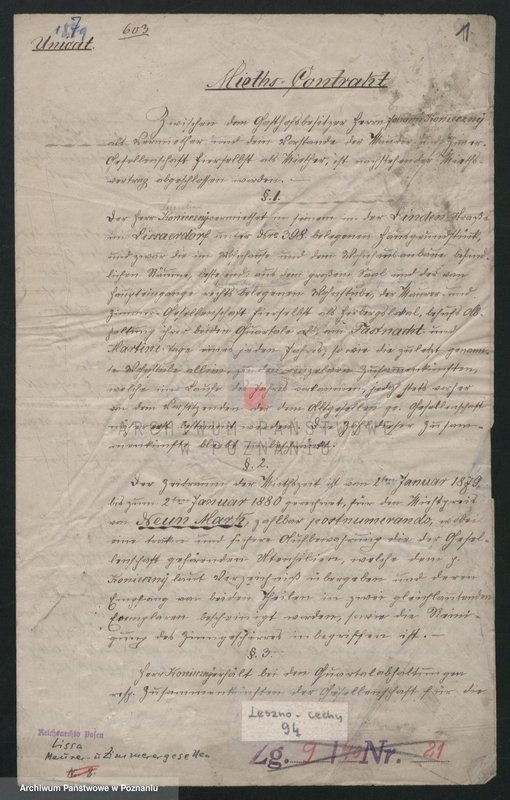 1879
603
11.
Unicat.
Mieths-Contrakt
Zwischen dem Gasthofsbesitzer Herrn Johann Konieczny
als Vermiether und dem Vorstande der Maurer und Zimmer-
Gesellenschaft hierselbst als Miether, ist nachstehender Mieths-
vertrag abgeschlossen worden. —
§. 1.
Der Herr Konieczny vermiethet in seinem in der Linden Straße
in Lissaerdorf unter Nro 398. belegenen Hausgrundstück,
und zwar die im Vorhause und dem Wohnhausanbaue befind-
lichen Räume, bestehend aus dem großen Saal und der vom
Haupteingange rechts belegenen Wohnstube, der Maurer- und
Zimmer-Gesellenschaft hierselbst als Herbergslokal, behufs Ab-
haltung ihrer beiden Quartale als am Fastnacht und
Martini-Tage eines jeden Jahres, so wie die zuletzt genann-
te Wohnstube allein zu den einzelnen Zusammenkünften,
welche im Laufe des Jahres vorkommen, jedoch stets vorher
von dem Vorsitzenden oder dem Altgesellen pp. Gesellenschaft
erst bestimmt werden. Die Zahl dieser Zusam-
menkünfte bleibt unbeschränkt.
§. 2.
Der Zeitraum der Miethszeit ist vom 2ten Januar 1879
bis zum 2ten Januar 1880 gerechnet, für den Miethspreis
von Neun Mark, zahlbar postnumerando, wobei
eine treue und sichere Aufbewahrung die der Gesel-
lenschaft gehörenden Utensilien, welche dem p.
Konieczny laut Verzeichniß übergeben und deren
Empfang von beiden Theilen in zwei gleichlautenden
Exemplaren bescheinigt worden, sowie die Reini-
gung des Zinngeschirres inbegriffen ist. —
§. 3.
Herr Konieczny erhält bei den Quartalabhaltungen
resp. Zusammenkünften der Gesellenschaft für die
Leszno-cechy
94
Reichsarchiv Posen
Lissa
Maurer- u Zimmerergesellen
N. 8.
Zg. 9 / 40 Nr. 21
ARCHIWUM PAŃSTWOWE
W POZNANIU
Archiwum Państwowe w Poznaniu